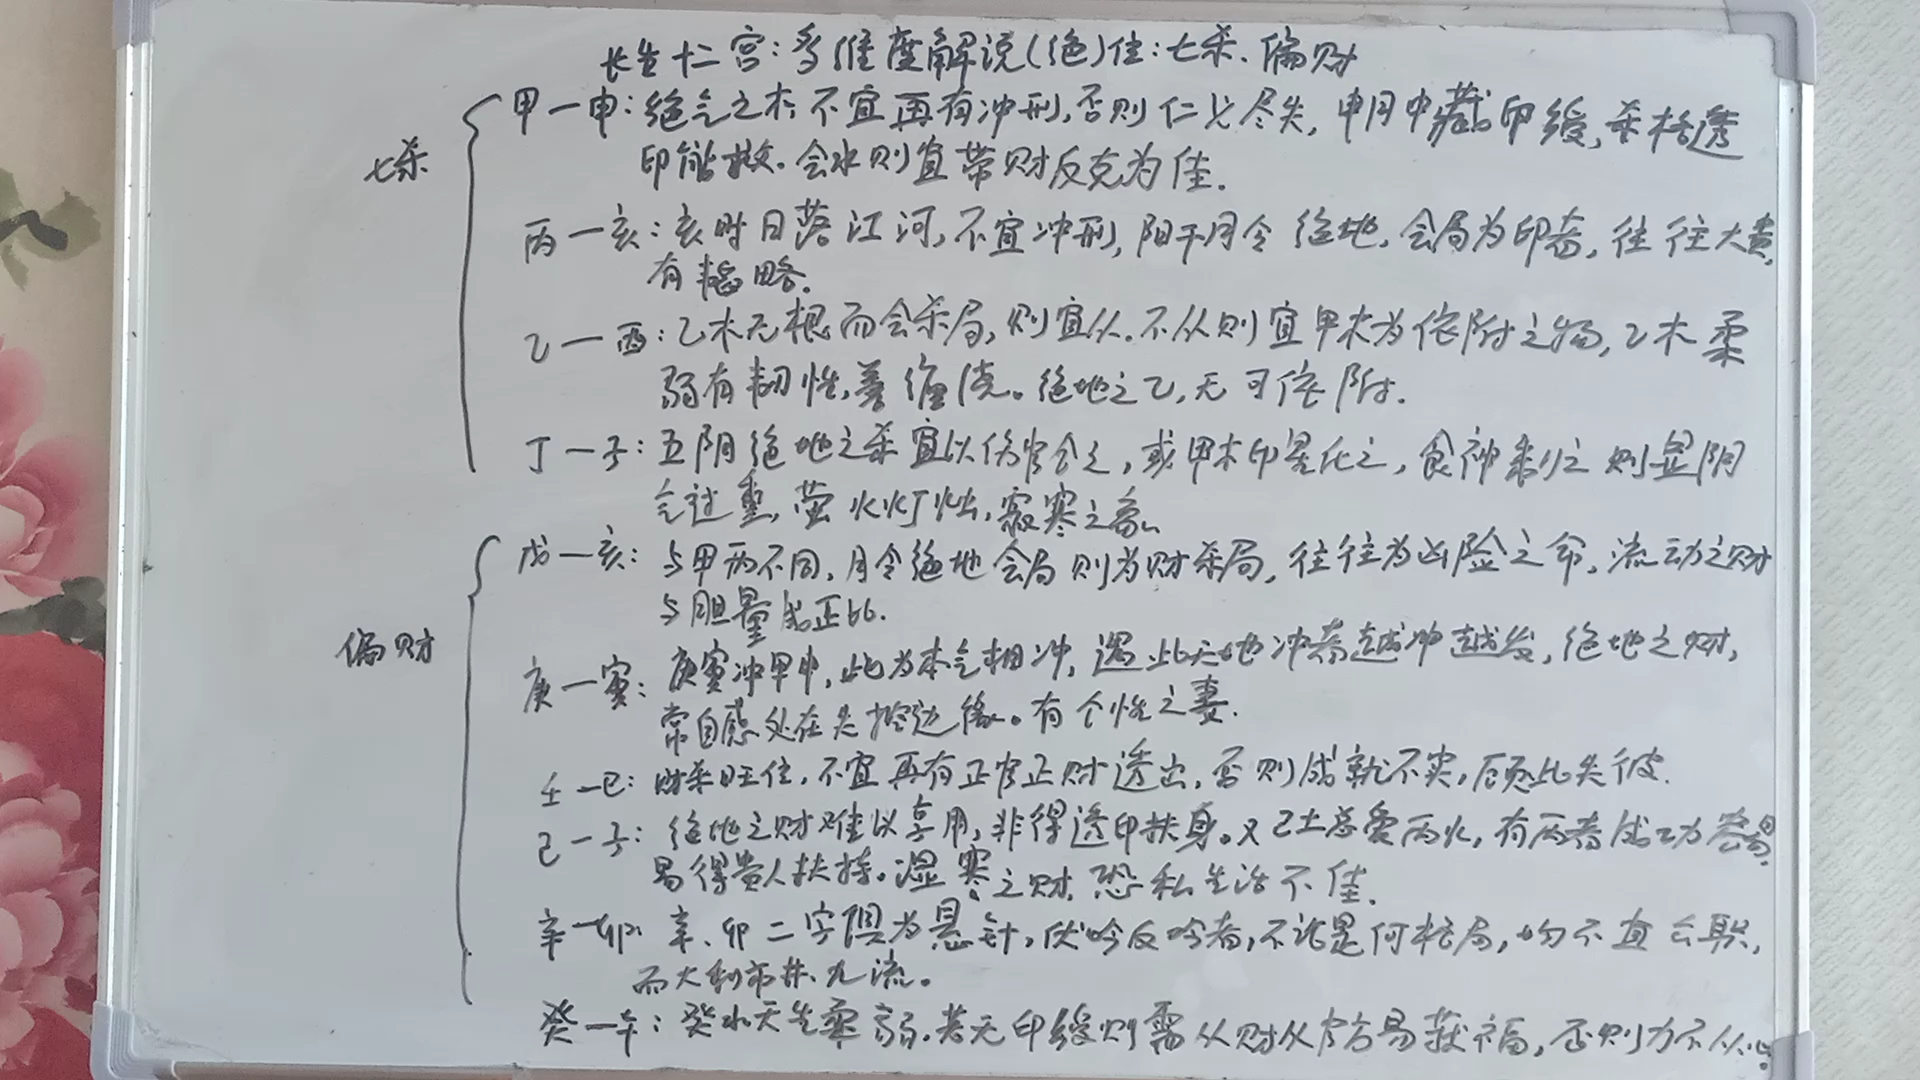 长生十二宫：多维度解说(绝)位：七杀.偏财
七杀
甲一申：绝气之木不宜再有冲刑，否则仁义尽失，申月中藏印绶，杀格透
印能救.会水则宜带财反克为佳.
丙一亥：亥时日落江河，不宜冲刑，阳干月令绝地，会局为印者，往往大贵，
有韬略.
乙一酉：乙木无根而会杀局，则宜从.不从则宜甲木为依附之物，乙木柔
弱有韧性，善缠绕。绝地之乙，无可依附.
丁一子：五阴绝地之杀宜以伤官合之，或甲木印星化之，食神制之则显阴
气过重，萤火灯烛，寂寒之象.
偏财
戊一亥：与甲丙不同，月令绝地会局则为财杀局，往往为凶险之命，流动之财
与胆量成正比.
庚一寅：庚寅冲甲申，此为本气相冲，遇此天地冲者越冲越发，绝地之财，
常自感处在失控边缘。有个性之妻.
壬一巳：财杀旺位，不宜再有正官正财透出，否则成就不实，顾此失彼.
己一子：绝地之财难以享用，非得透印扶身。又己土总爱丙火，有丙者成功容易，
易得贵人扶持。湿寒之财，恐私生活不佳.
辛一卯：辛、卯二字俱为悬针，伏吟反吟者，不论是何格局，均不宜公职，
而大利市井、九流。
癸一午：癸水天生柔弱.若无印绶则需从财从官方易获福，否则力不从心.